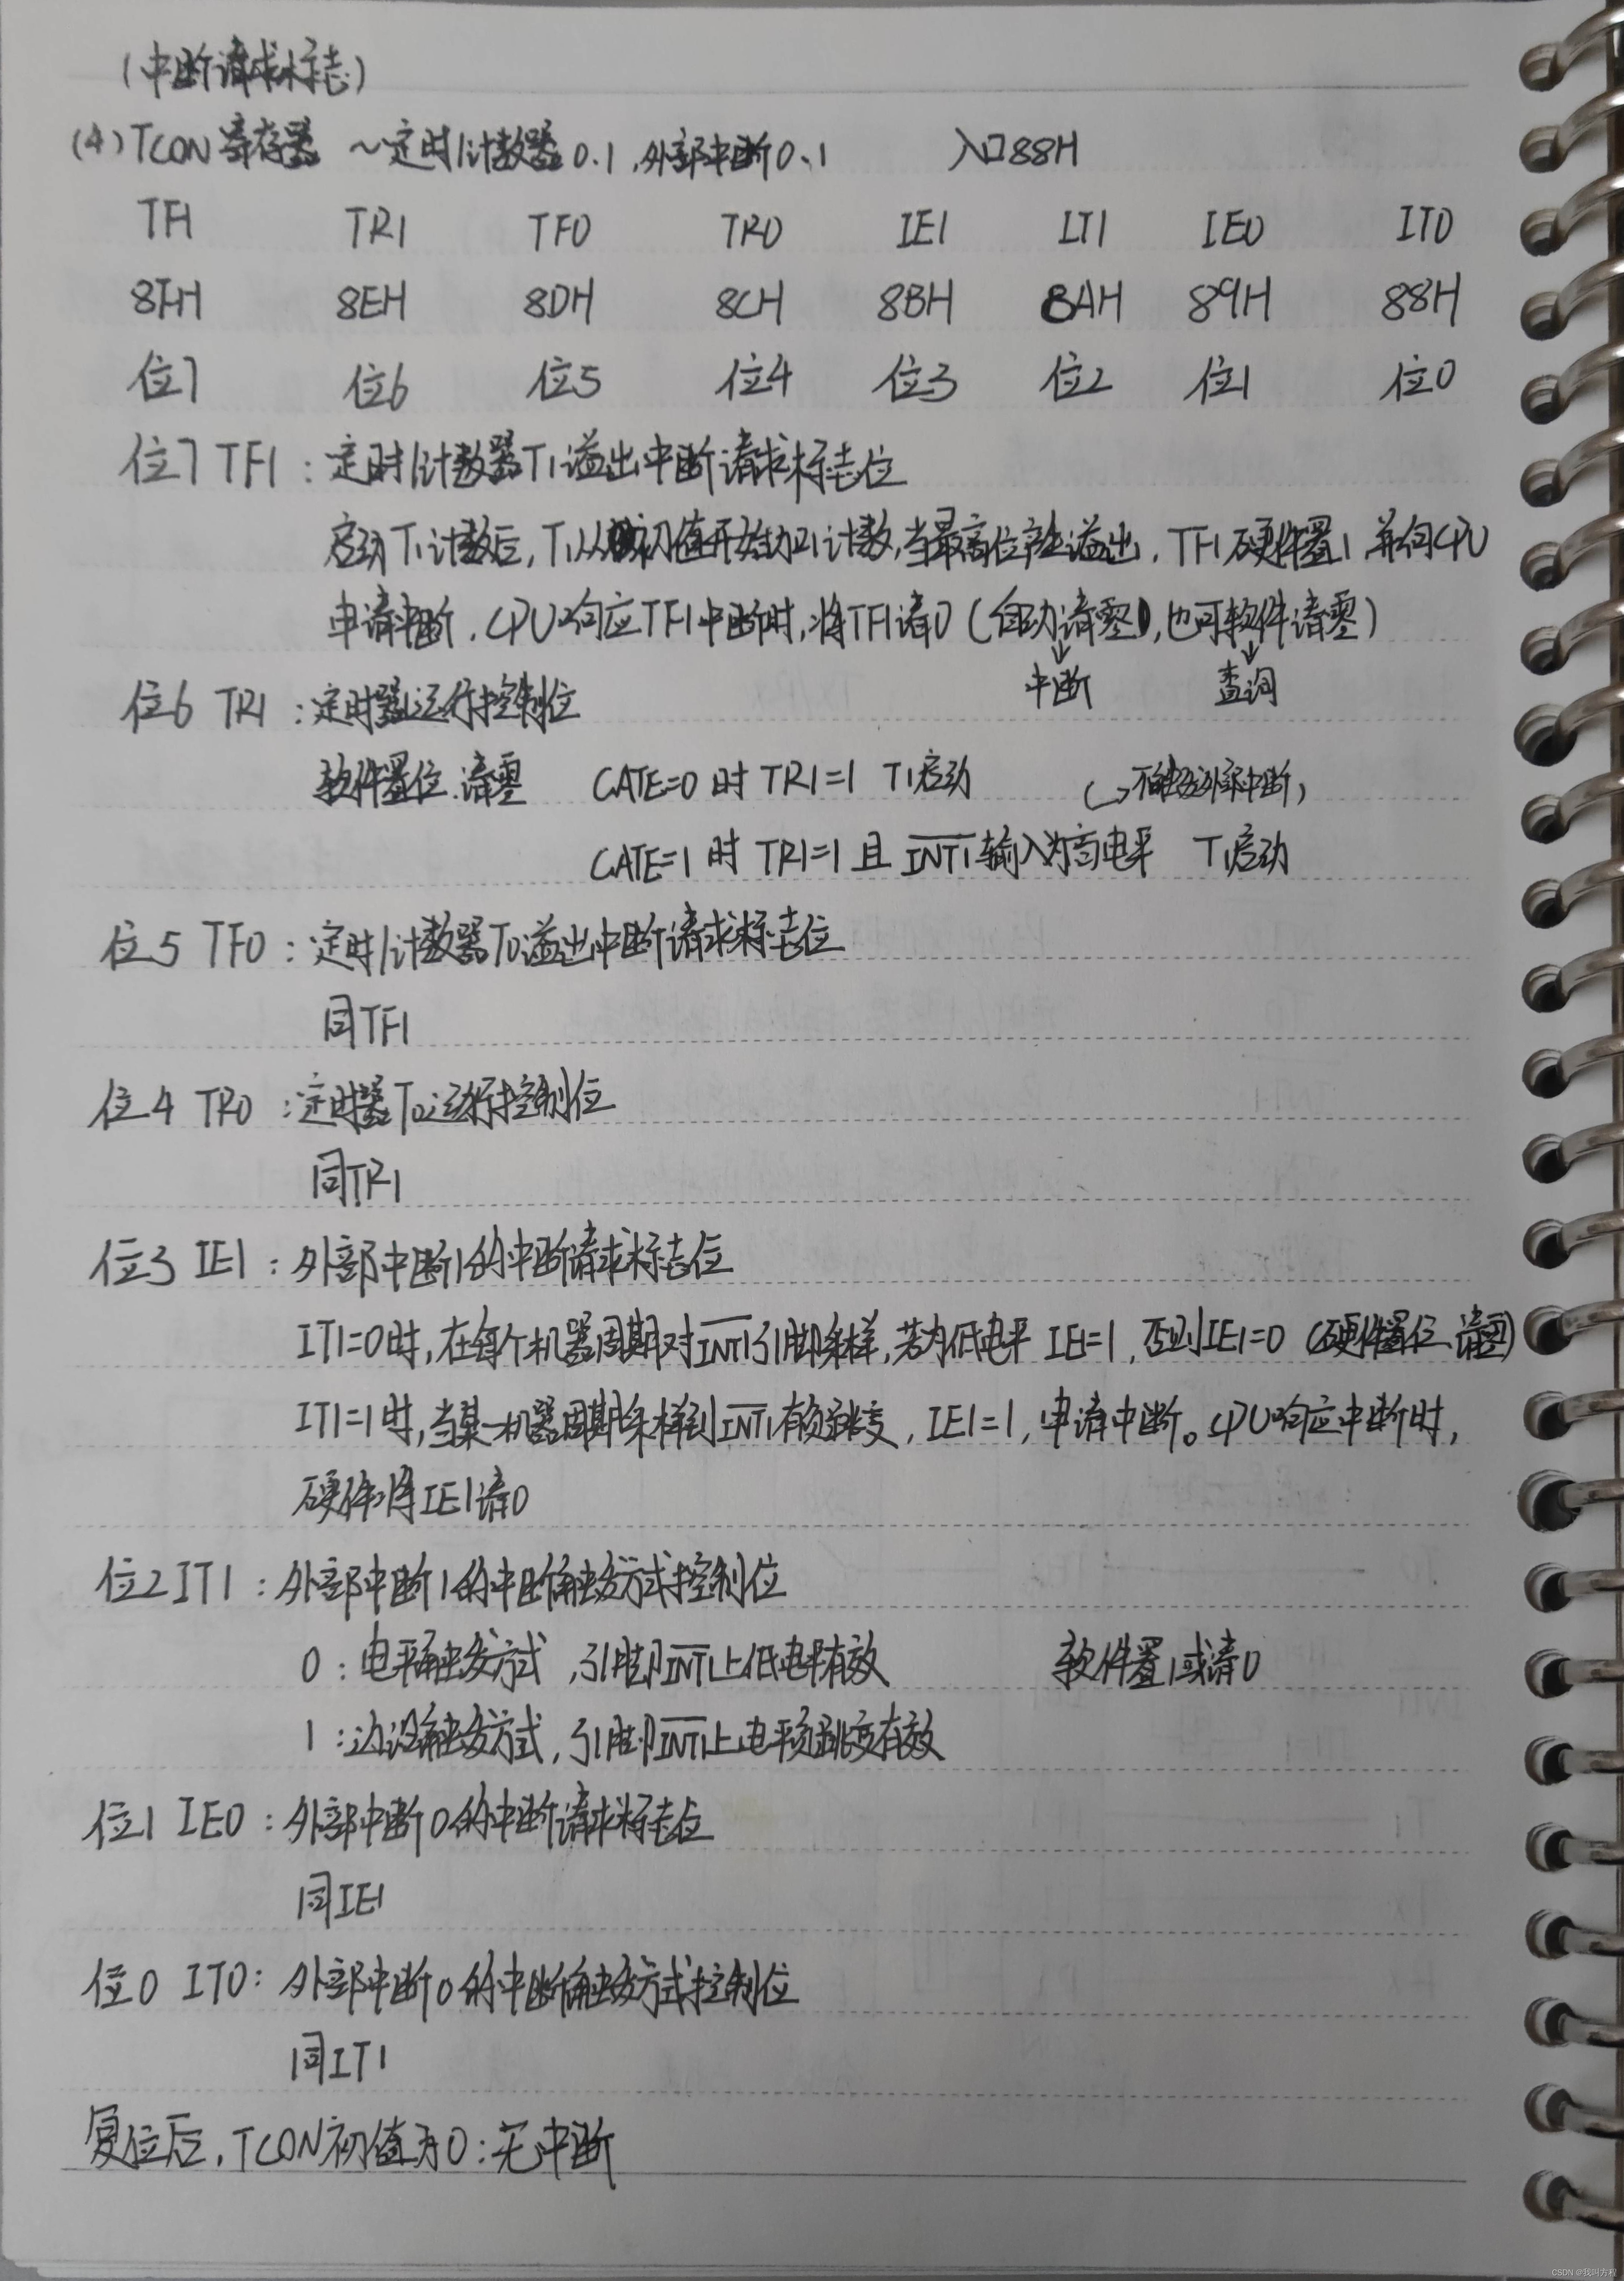 (中断请求标志)
(4)TCON寄存器 ~定时/计数器0.1,外部中断0、1 入口88H
TF1 TR1 TF0 TR0 IE1 IT1 IE0 IT0
8FH 8EH 8DH 8CH 8BH 8AH 89H 88H
位7 位6 位5 位4 位3 位2 位1 位0
位7 TF1:定时/计数器T1溢出中断请求标志位
启动T1计数后,T1从初值开始加1计数,当最高位产生溢出,TF1硬件置1,并向CPU
申请中断.CPU响应TF1中断时,将TF1请0(自动请零,也可软件请零)
中断 查询
位6 TR1:定时器1运行控制位
软件置位.请零 GATE=0时 TR1=1 T1启动 (→不触发外部中断)
GATE=1时 TR1=1且INT1输入为高电平 T1启动
位5 TF0:定时/计数器T0溢出中断请求标志位
同TF1
位4 TR0:定时器T0运行控制位
同TR1
位3 IE1:外部中断1的中断请求标志位
IT1=0时,在每个机器周期对INT1引脚采样,若为低电平 IE1=1,否则IE1=0(硬件置位、请零)
IT1=1时,当某一机器周期采样到INT1有负跳变,IE1=1,申请中断。CPU响应中断时,
硬件将IE1请0
位2 IT1:外部中断1的中断触发方式控制位
0:电平触发方式,引脚INT1上低电平有效 软件置1或请0
1:边沿触发方式,引脚INT1上电平负跳变有效
位1 IE0:外部中断0的中断请求标志位
同IE1
位0 IT0:外部中断0的中断触发方式控制位
同IT1
复位后,TCON初值为0:无中断
CSDN @我叫方程